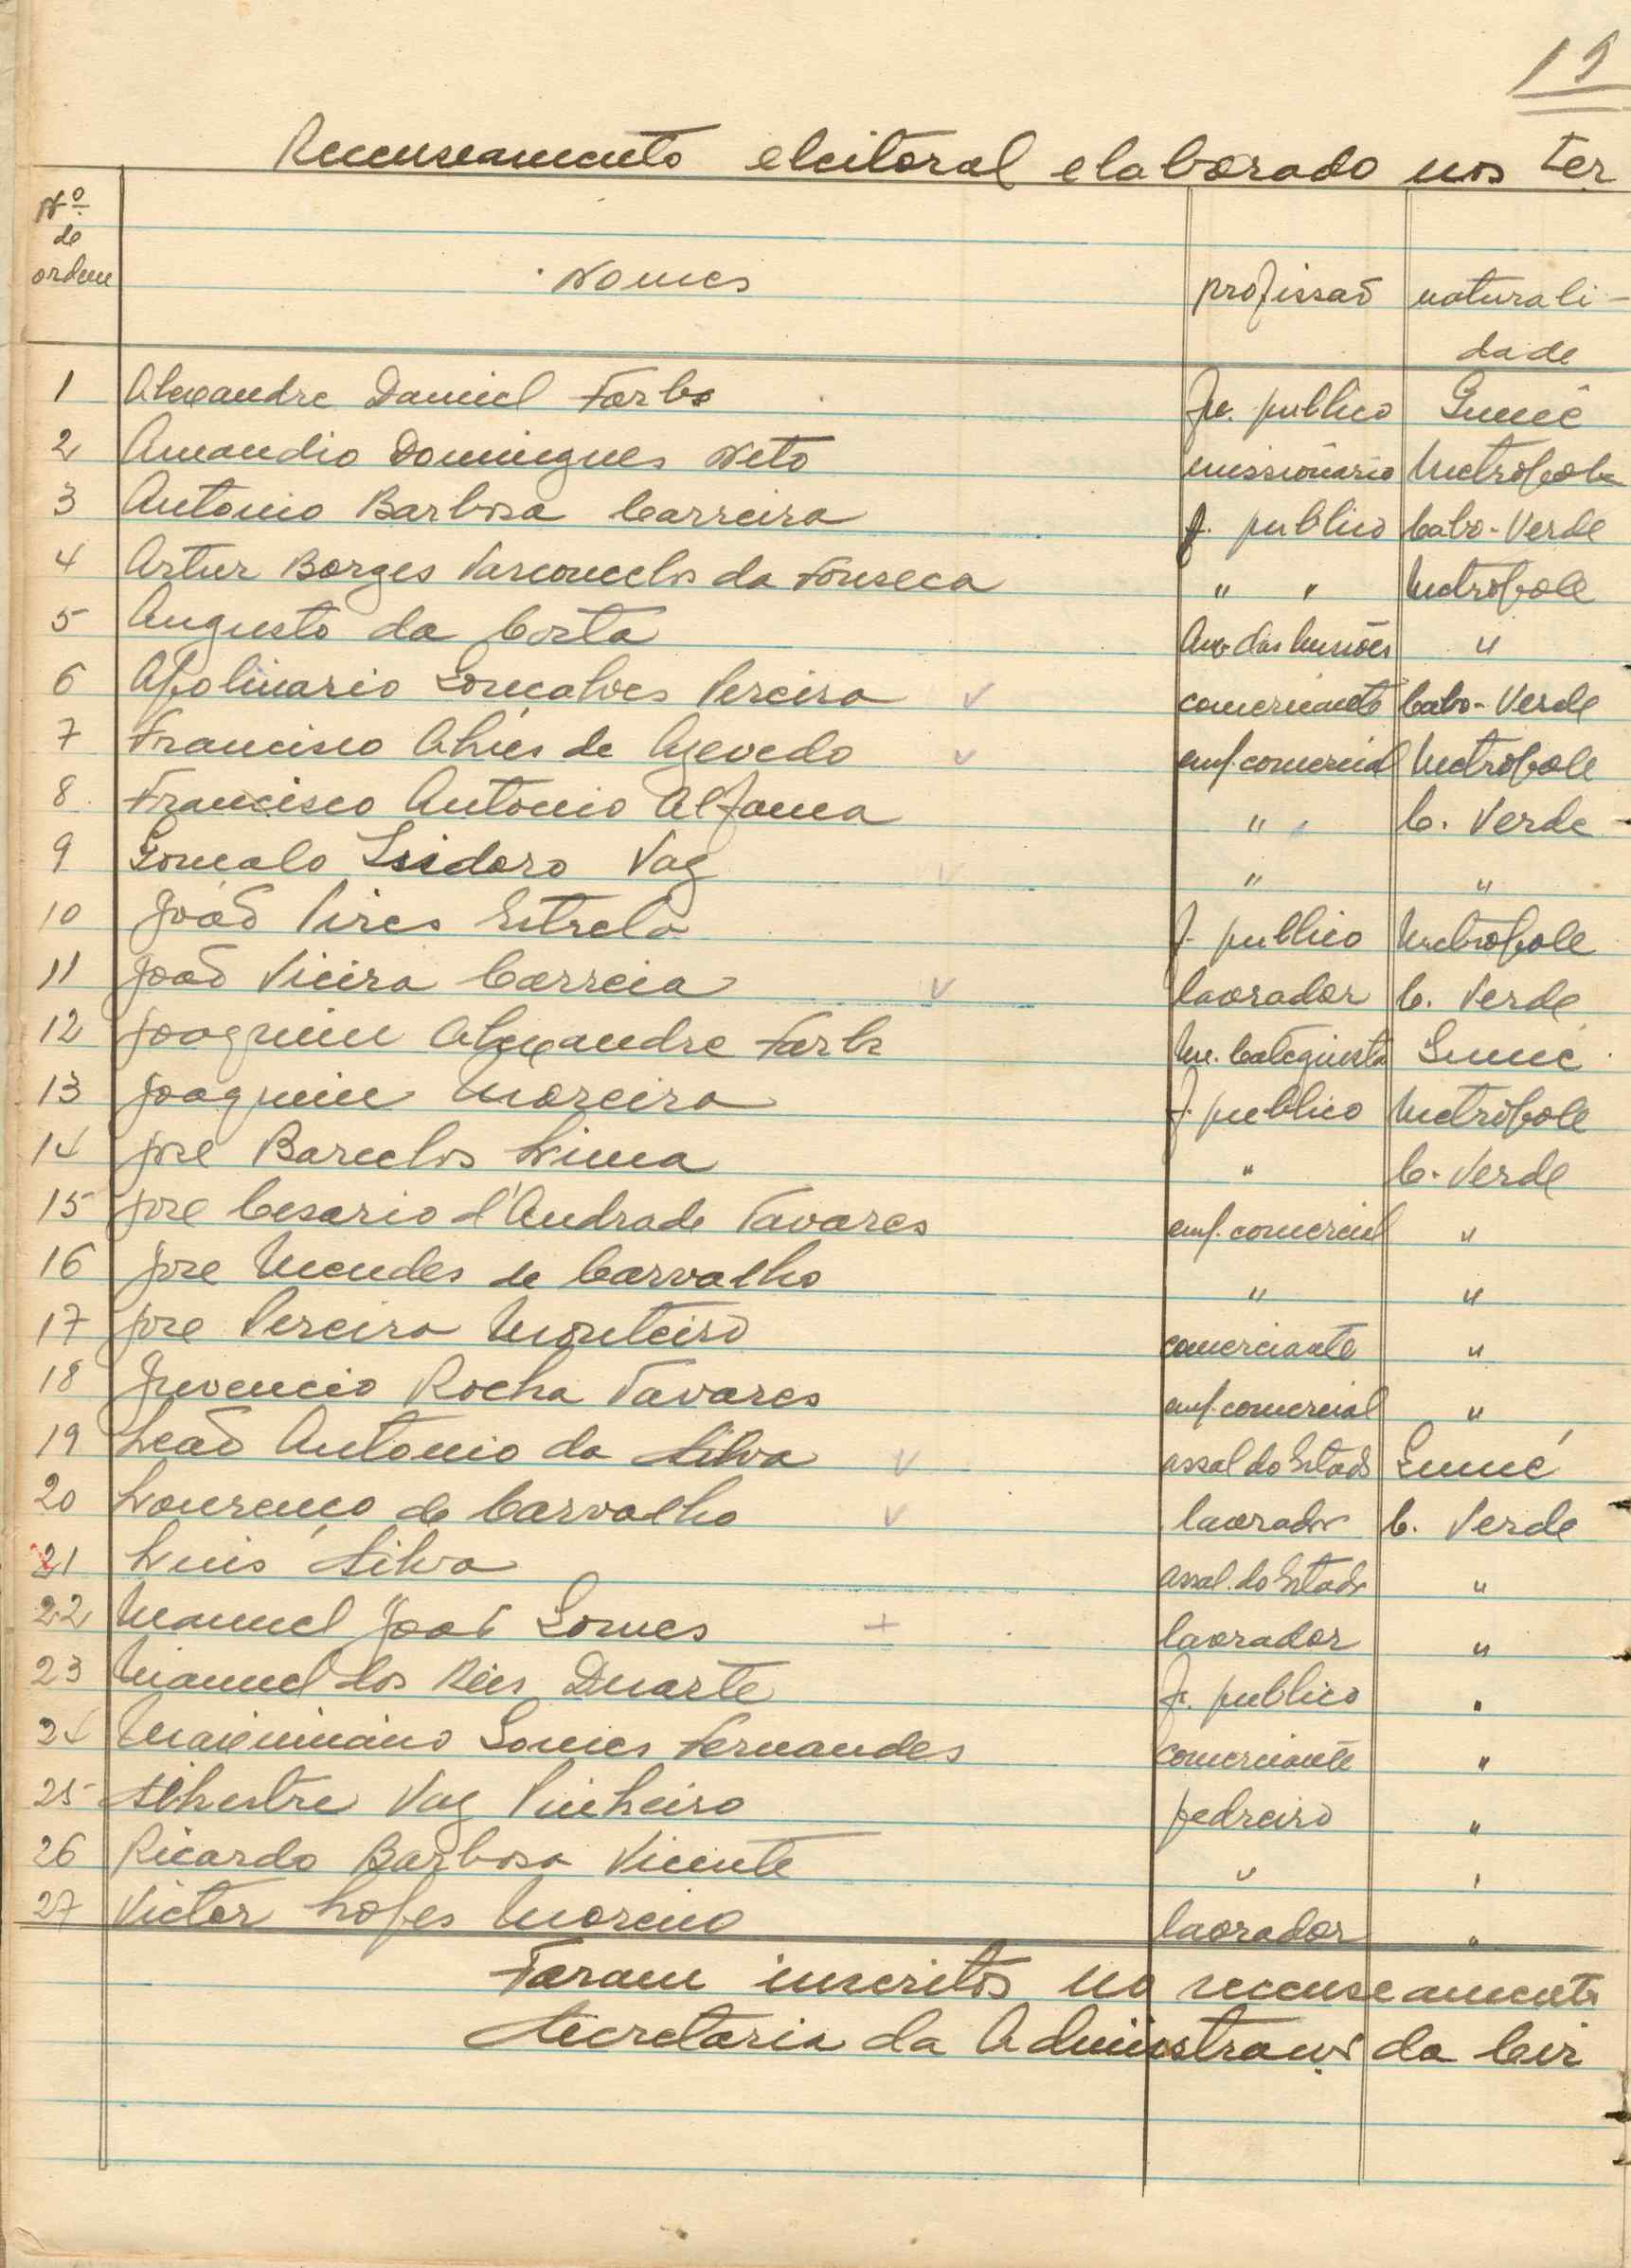 19
Recenseamento eleitoral elaborado nos ter
Nº de ordem Nomes profissaõ naturalidade
1 Alexandre Daniel Forbs Fu. publico Guiné
2 Amandio Domingues Neto missionario Metropole
3 Antonio Barbosa Carreira f. publico Cabo-Verde
4 Artur Borges Vasconcelos da Fonseca " " Metropole
5 Augusto da Costa Aux. das Missões "
6 Apolinario Gonçalves Pereira comerciante Cabo-Verde
7 Francisco Alves de Azevedo emp. comercial Metropole
8 Francisco Antonio Alfama " " C. Verde
9 Gonçalo Isidoro Vaz " "
10 Joaõ Pires Estrela f. publico Metropole
11 Joaõ Vieira Carreia lavrador C. Verde
12 Joaquim Alexandre Forbs Categuista Guiné
13 Joaquim Moreira f. publico Metropole
14 José Barcelos Lima " C. Verde
15 José Cesario d'Andrade Tavares emp. comercial "
16 José Mendes de Carvalho " "
17 José Pereira Monteiro comerciante "
18 Juvencio Rocha Tavares emp. comercial "
19 Leaõ Antonio da Silva assal do Estado Guiné
20 Lourenço de Carvalho lavrador C. Verde
21 Luis Silva assal. do Estado "
22 Manuel Joaõ Gomes + lavrador "
23 Manuel dos Reis Duarte f. publico "
24 Maximiano Gomes Fernandes comerciante "
25 Silvestre Vaz Pinheiro pedreiro "
26 Ricardo Barbosa Vicente " "
27 Victor Lopes Moreno lavrador "
Foram inscritos no recenseamento
Secretaria da Administraçaõ da Cir